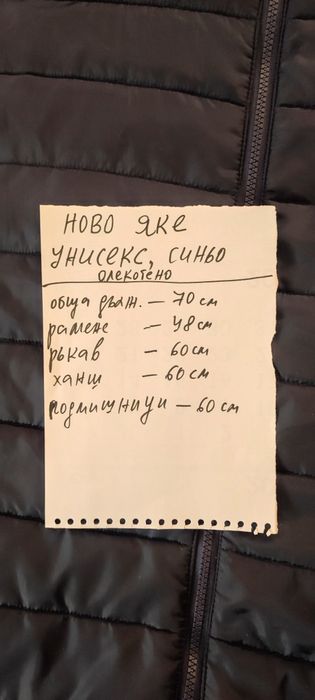 НОВО ЯКЕ
УНИСЕКС, СИНЬО
ОЛЕКОТЕНО
обща дълж. — 70 см
рамене — 48 см
ръкав — 60 см
ханш — 60 см
подмишници — 60 см